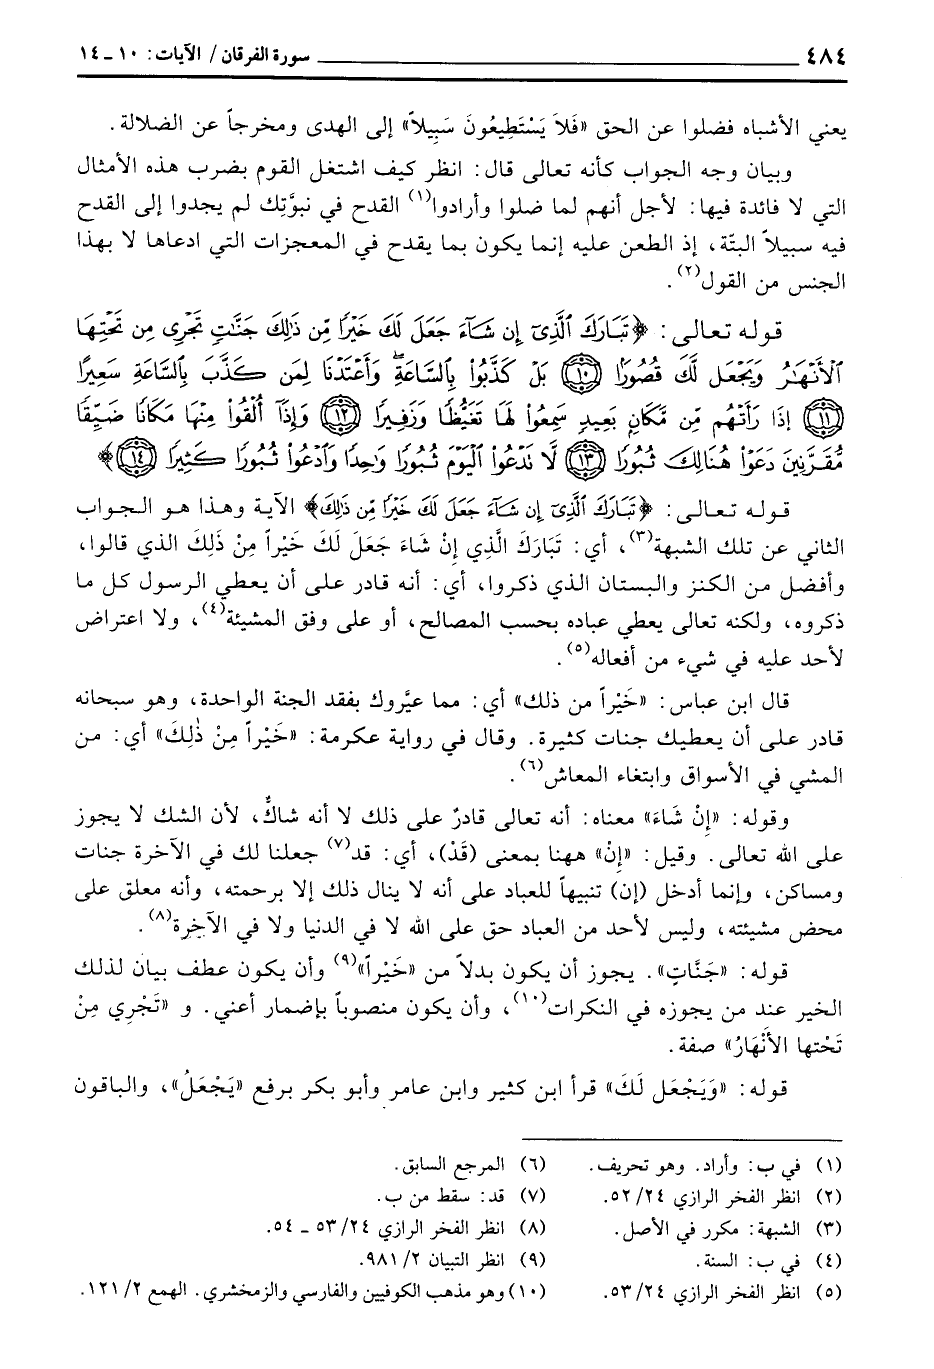 ٤٨٤ سورة الفرقان / الآيات : ١٠ - ١٤
يعني الأشباه فضلوا عن الحق «فَلاَ يَسْتَطِيعُونَ سَبِيلاً» إلى الهدى ومخرجاً عن الضلالة .
وبيان وجه الجواب كأنه تعالى قال : انظر كيف اشتغل القوم بضرب هذه الأمثال
التي لا فائدة فيها : لأجل أنهم لما ضلوا وأرادوا(١) القدح في نبوَّتِك لم يجدوا إلى القدح
فيه سبيلاً البتّة ، إذ الطعن عليه إنما يكون بما يقدح في المعجزات التي ادعاها لا بهذا
الجنس من القول(٢) .
قوله تعالى : ﴿تَبَارَكَ ٱلَّذِىٓ إِن شَآءَ جَعَلَ لَكَ خَيْرًا مِّن ذَٰلِكَ جَنَّٰتٍ تَجْرِى مِن تَحْتِهَا
ٱلْأَنْهَٰرُ وَيَجْعَل لَّكَ قُصُورًا ﴿١٠﴾ بَلْ كَذَّبُوا۟ بِٱلسَّاعَةِ ۖ وَأَعْتَدْنَا لِمَن كَذَّبَ بِٱلسَّاعَةِ سَعِيرًا
﴿١١﴾ إِذَا رَأَتْهُم مِّن مَّكَانٍ بَعِيدٍ سَمِعُوا۟ لَهَا تَغَيُّظًا وَزَفِيرًا ﴿١٢﴾ وَإِذَآ أُلْقُوا۟ مِنْهَا مَكَانًا ضَيِّقًا
مُّقَرَّنِينَ دَعَوْا۟ هُنَالِكَ ثُبُورًا ﴿١٣﴾ لَّا تَدْعُوا۟ ٱلْيَوْمَ ثُبُورًا وَٰحِدًا وَٱدْعُوا۟ ثُبُورًا كَثِيرًا ﴿١٤﴾﴾
قوله تعالى : ﴿تَبَارَكَ ٱلَّذِىٓ إِن شَآءَ جَعَلَ لَكَ خَيْرًا مِّن ذَٰلِكَ﴾ الآية وهذا هو الجواب
الثاني عن تلك الشبهة(٣) ، أي : تَبَارَكَ الَّذِي إِنْ شَاءَ جَعَلَ لَكَ خَيْراً مِنْ ذَلِكَ الذي قالوا ،
وأفضل من الكنز والبستان الذي ذكروا ، أي : أنه قادر على أن يعطي الرسول كل ما
ذكروه ، ولكنه تعالى يعطي عباده بحسب المصالح ، أو على وفق المشيئة(٤) ، ولا اعتراض
لأحد عليه في شيء من أفعاله(٥) .
قال ابن عباس : «خَيْراً من ذلك» أي : مما عيَّروك بفقد الجنة الواحدة ، وهو سبحانه
قادر على أن يعطيك جنات كثيرة . وقال في رواية عكرمة : «خَيْراً مِنْ ذٰلِكَ» أي : من
المشي في الأسواق وابتغاء المعاش(٦) .
وقوله : «إِنْ شَاءَ» معناه : أنه تعالى قادرٌ على ذلك لا أنه شاكٌّ ، لأن الشك لا يجوز
على الله تعالى . وقيل : «إِنْ» ههنا بمعنى (قَدْ) ، أي : قد(٧) جعلنا لك في الآخرة جنات
ومساكن ، وإنما أدخل (إن) تنبيهاً للعباد على أنه لا ينال ذلك إلا برحمته ، وأنه معلق على
محض مشيئته ، وليس لأحد من العباد حق على الله لا في الدنيا ولا في الآخِرة(٨) .
قوله : «جَنَّاتٍ» . يجوز أن يكون بدلاً من «خَيْراً»(٩) وأن يكون عطف بيان لذلك
الخير عند من يجوزه في النكرات(١٠) ، وأن يكون منصوباً بإضمار أعني . و «تَجْرِي مِنْ
تَحْتها الأَنْهَارُ» صفة .
قوله : «وَيَجْعَل لَكَ» قرأ ابن كثير وابن عامر وأبو بكر برفع «يَجْعَلُ» ، والباقون
(١) في ب : وأراد . وهو تحريف .
(٢) انظر الفخر الرازي ٥٢/٢٤.
(٣) الشبهة : مكرر في الأصل .
(٤) في ب : السنة .
(٥) انظر الفخر الرازي ٥٣/٢٤.
(٦) المرجع السابق .
(٧) قد : سقط من ب .
(٨) انظر الفخر الرازي ٥٣/٢٤ - ٥٤.
(٩) انظر التبيان ٩٨١/٢.
(١٠) وهو مذهب الكوفيين والفارسي والزمخشري . الهمع ١٢١/٢.